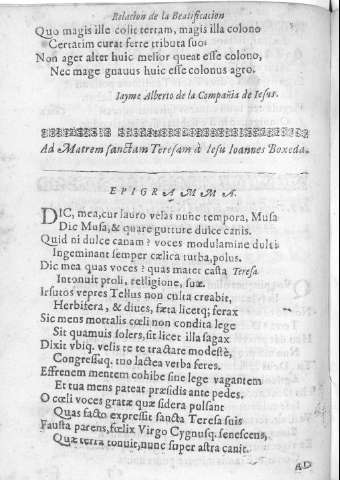 Relacion de la Beatificacion
Quo magis ille colit terram, magis illa colono
Certatim curat ferre tributa suo.
Non ager alter huic melior queat esse colono,
Nec mage gnauus huic esse colonus agro.
Iayme Alberto de la Compañia de Iesus.
Ad Matrem sanctam Teresam à Iesu Ioannes Boxeda.
EPIGRAMMA.
DIC, mea, cur lauro velas nunc tempora, Musa
Dic Musa, & quare gutture dulce canis.
Quid ni dulce canam? voces modulamine dulci
Ingeminant semper cælica turba, polus.
Dic mea quas voces? quas mater casta Teresa
Intonuit proli, relligione, suæ.
Irsutos vepres Tellus non culta creabit,
Herbifera, & diues, fæta licetq; ferax
Sic mens mortalis cœli non condita lege
Sit quamuis solers, sit licet illa sagax
Dixit vbiq. velis te te tractare modestè,
Congressuq. tuo lactea verba feres.
Effrenem mentem cohibe sine lege vagantem
Et tua mens pateat præsidis ante pedes.
O cœli voces gratæ quæ sidera pulsant
Quas facto expressit sancta Teresa suis
Fausta parens, fœlix Virgo Cygnusq. senescens,
Quæ terra tonuit, nunc super astra canit.
AD